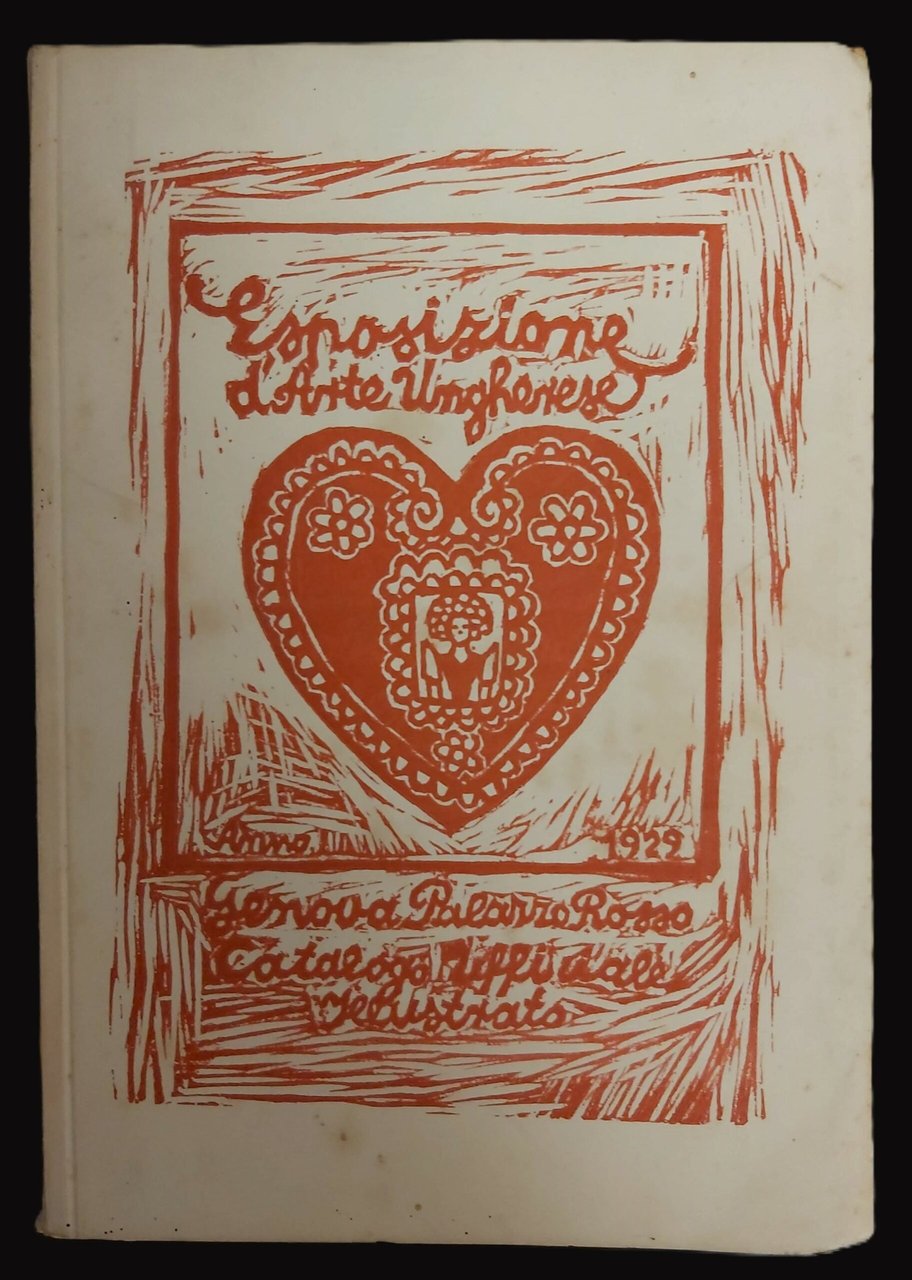 Esposizione
d'Arte Ungherese
Anno 1929
Genova Palazzo Rosso
Catalogo Uffizïale
Illustrato